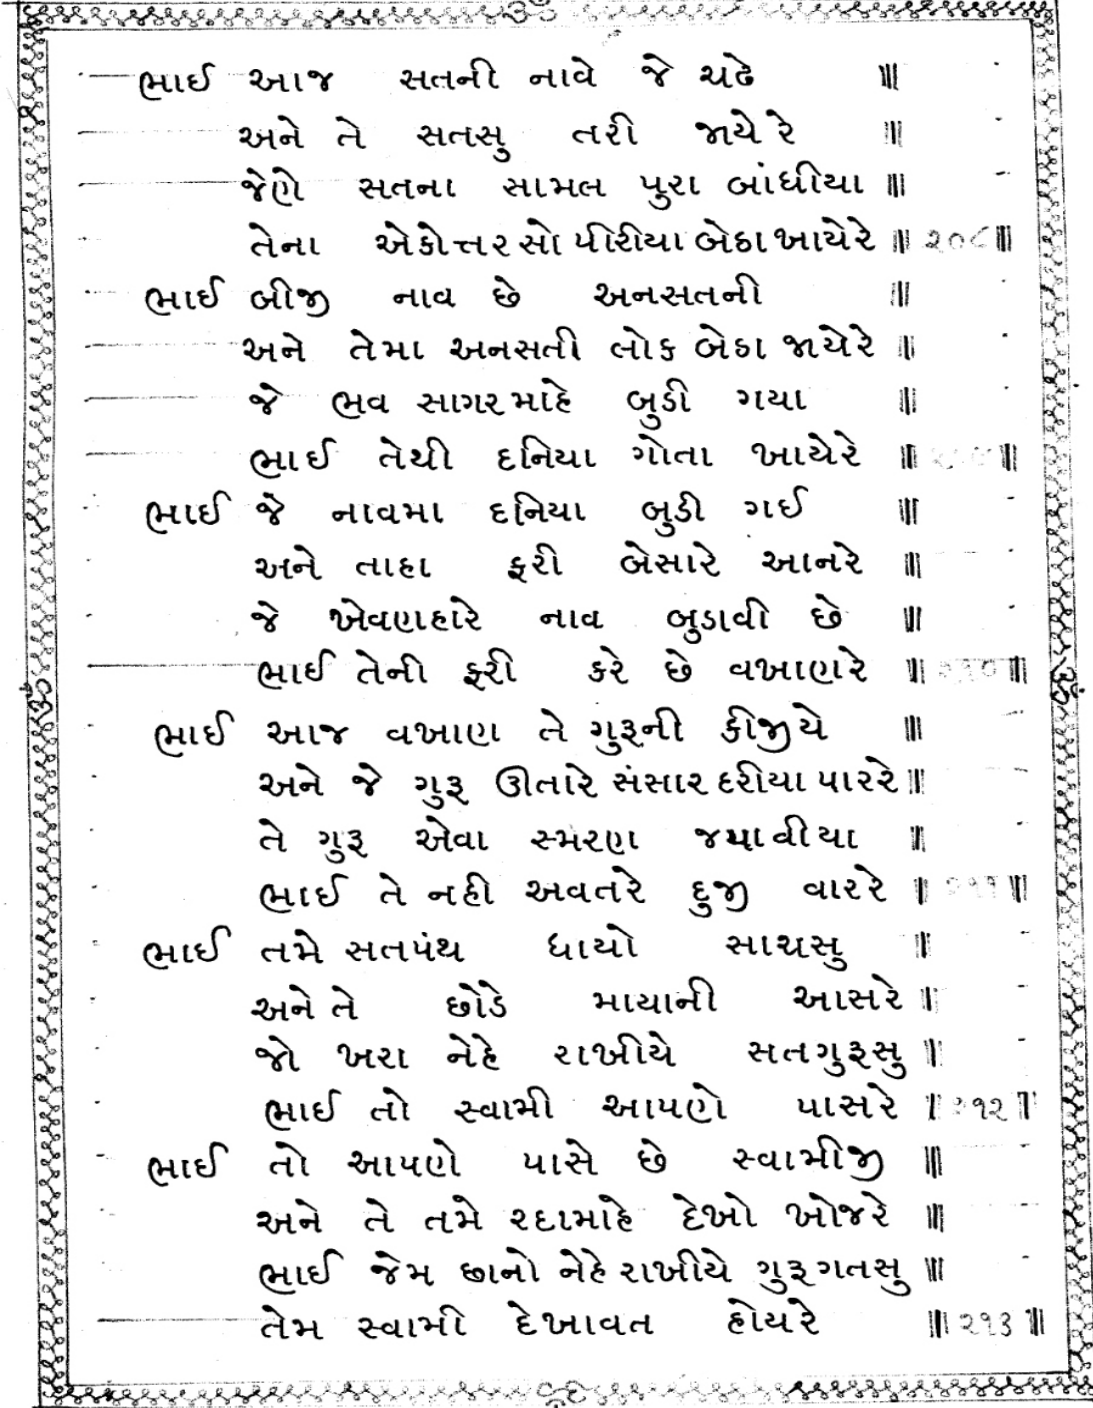 ભાઈ આજ સતની નાવે જે ચઢે ॥
અને તે સતસુ તરી જાયે રે ॥
જેણે સતના સામલ પુરા બાંધીયા ॥
તેના એકોત્તર સો પીરીયા બેઠા ખાયેરે ॥ ૨૦૮ ॥
ભાઈ બીજી નાવ છે અનસતની ॥
અને તેમા અનસતી લોક બેઠા જાયેરે ॥
જે ભવ સાગર માંહે બુડી ગયા ॥
ભાઈ તેથી દનિયા ગોતા ખાયેરે ॥ ॥
ભાઈ જે નાવમા દનિયા બુડી ગઈ ॥
અને તાહા ફરી બેસારે આનરે ॥
જે ખેવણહારે નાવ બુડાવી છે ॥
ભાઈ તેની ફરી કરે છે વખાણરે ॥ ૨૧૦ ॥
ભાઈ આજ વખાણ તે ગુરૂની કીજીયે ॥
અને જે ગુરૂ ઊતારે સંસાર દરીયા પારરે ॥
તે ગુરૂ એવા સ્મરણ જપાવીયા ॥
ભાઈ તે નહી અવતરે દુજી વારરે ॥ ૨૧૧ ॥
ભાઈ તમે સતપંથ ધાયો સાચસુ ॥
અને તે છોડે માયાની આસરે ॥
જો ખરા નેહે રાખીયે સતગુરૂસુ ॥
ભાઈ તો સ્વામી આપણે પાસરે ॥ ૨૧૨ ॥
ભાઈ તો આપણે પાસે છે સ્વામીજી ॥
અને તે તમે રદામાહે દેખો ખોજરે ॥
ભાઈ જેમ છાનો નેહે રાખીયે ગુરૂગતસુ ॥
તેમ સ્વામી દેખાવત હોયરે ॥ ૨૧૩ ॥